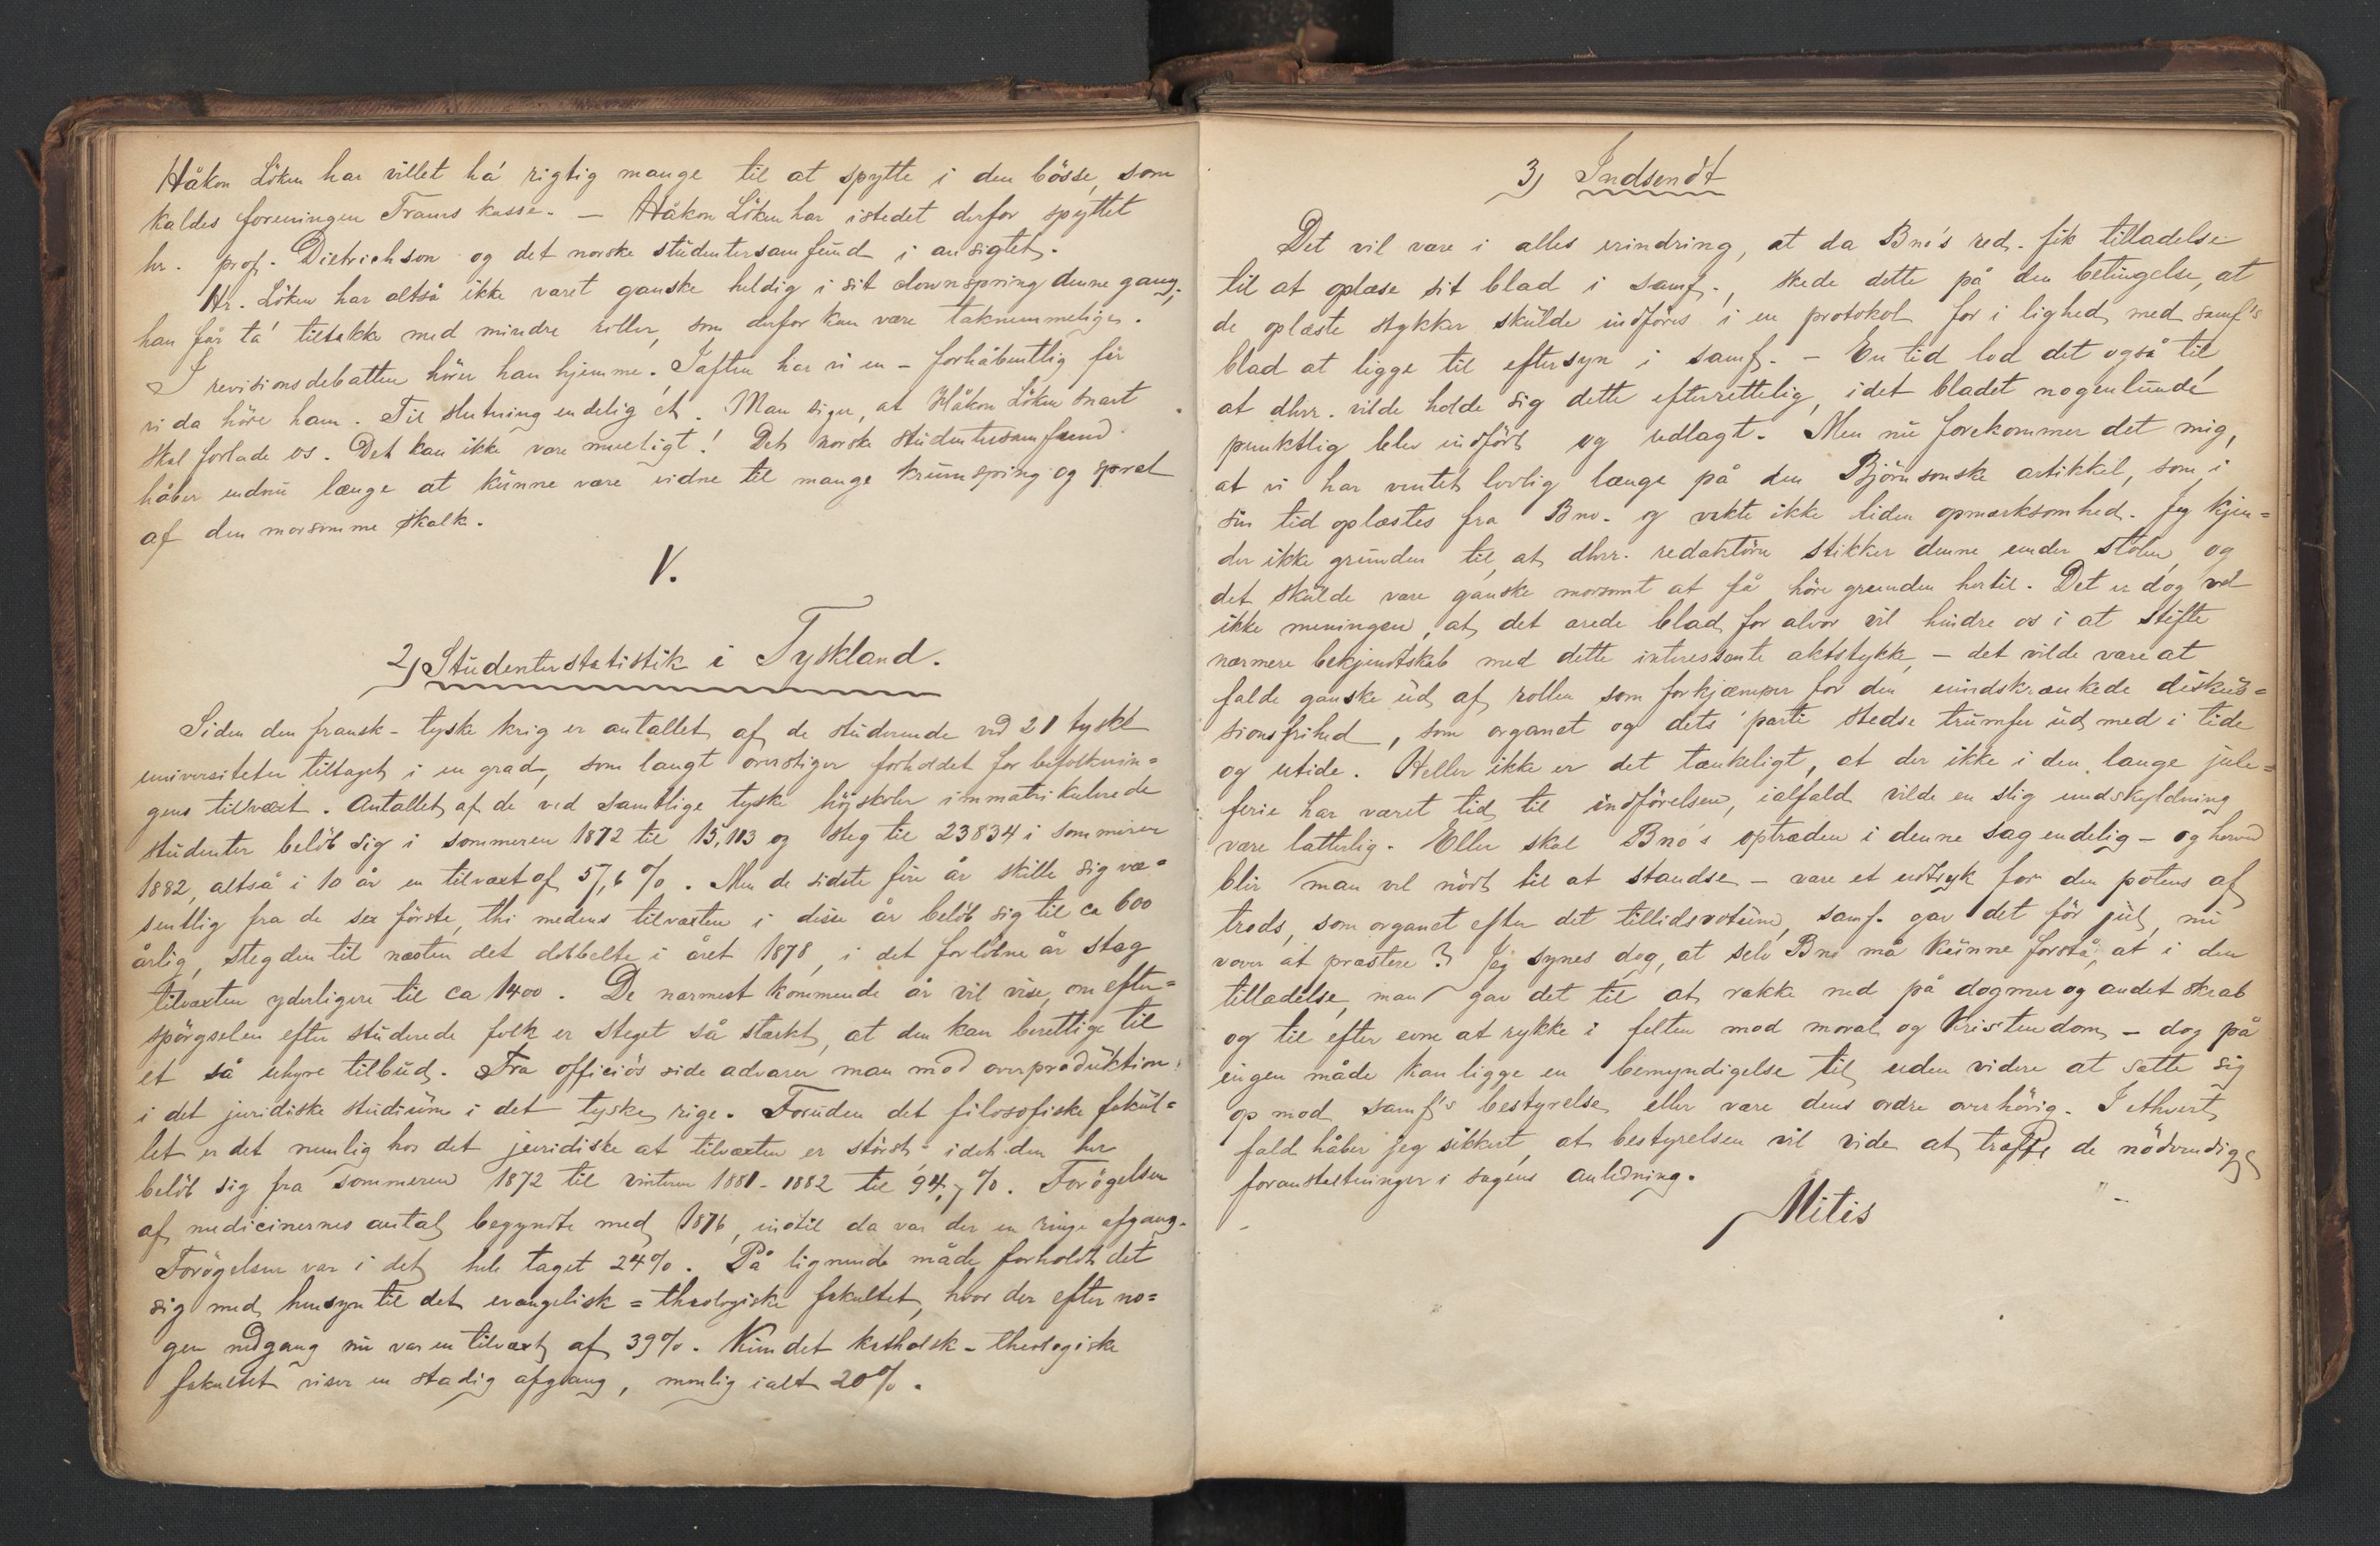 Håkon Löken har villet há rigtig mange til at spytte i den bösse, som
kaldes foreningen Trams kasse. — Håkon Löken har istedet derfor spyttet
hr. prof. Dietrichson og det norske studentersamfund i ansigtet.
Hr. Löken har altså ikke været ganske heldig i sit clownspring denne gang;
han får ta' tiltakke med mindre roller, som derfor kan være taknemmelige.
I revisionsdebatten hörer han hjemme. Iaften har vi en – forhåbentlig får
vi da höre ham. Til slutning endelig ét. Man siger, at Håkon Löken snart
skal forlade os. Det kan ikke være mueligt! Det norske studentersamfund
håber endnu længe at kunne være vidne til mange krumspring og spræl
af den morsomme skalk.
V.
2) Studenterstatistik i Tyskland.
Siden den fransk-tyske krig er antallet af de studerende ved 21 tyske
universiteter tiltaget i en grad, som langt overstiger forholdet for befolknin=
gens tilvæxt. Antallet af de ved samtlige tyske höjskoler immatrikulerede
studenter belöb sig i sommeren 1872 til 15,113 og steg til 23834 i sommeren
1882, altså i 10 år en tilvæxt af 57,6 %. Men de sidste fire år skille sig væ=
sentlig fra de sex förste, thi medens tilvæxten i disse år belöb sig til ca 600
årlig, steg den til næsten det dobbelte i året 1878, i det forlöbne år steg
tilvæxten yderligere til ca 1400. De nærmest kommende år vil vise, om efter=
spörgselen efter studerede folk er steget så stærkt, at den kan berettige til
et så uhyre tilbud. Fra officiös side advarer man mod overproduktion
i det juridiske studium i det tyske rige. Foruden det filosofiske fakul=
tet er det nemlig hos det juridiske at tilvæxten er störst, idet den her
belöb sig fra sommeren 1872 til vinteren 1881–1882 til 94,7 %. Forögelsen
af medicinernes antal begyndte med 1876, indtil da var der en ringe afgang.
Forögelsen var i det hele taget 24%. På lignende måde forholdt det
sig med hensyn til det evangelisk=theologiske fakultet, hvor der efter no=
gen nedgang nu var en tilvæxt af 39%. Kun det katholsk-theologiske
fakultet viser en stadig afgang, nemlig ialt 20%.
3) Indsendt
Det vil være i alles erindring, at da Bno's red. fik tilladelse
til at oplæse sit blad i samf., skede dette på den betingelse, at
de oplæste stykker skulde indföres i en protokol for i lighed med samf's
blad at ligge til eftersyn i samf. – En tid lod det også til,
at dhrr. vilde holde sig dette efterrettelig, idet bladet nogenlunde
punktlig blev indfört og udlagt. Men nu forekommer det mig,
at vi har ventet lovlig længe på den Björnsonske artikkel, som i
sin tid oplæstes fra Bno. og vakte ikke liden opmærksomhed. Jeg kjen=
der ikke grunden til, at dhrr. redaktörer stikker denne under stolen, og
det skulde være ganske morsomt at få höre grunden hertil. Det er dog vel
ikke meningen, at det ærede blad for alvor vil hindre os i at stifte
nærmere bekjendtskab med dette interessante aktstykke, – det vilde være at
falde ganske ud af rollen som forkjæmper for den uindskrænkede diskus=
sionsfrihed, som organet og dets parti stedse trumfer ud med i tide
og utide. Heller ikke er det tænkeligt, at der ikke i den lange jule=
ferie har været tid til indförelsen, ialfald vilde en slig undskyldning
være latterlig. Eller skal Bno's optræden i denne sag endelig – og herved
blir man vel nödt til at standse – være et udtryk for den potens af
trods, som organet efter det tillidsvotum, samf. gav det för jul, nu
vover at præstere? Jeg synes dog, at selv Bno må kunne forstå, at i den
tilladelse, man gav det til at rakke ned på dogmer og andet skrab
og til efter evne at rykke i felten mod moral og Kristendom – dog på
ingen måde kan ligge en bemyndigelse til uden videre at sætte sig
op mod samf's bestyrelse eller være dens ordre overhörig. I ethvert
fald håber jeg sikkert, at bestyrelsen vil vide at træffe de nödvendige
foranstaltninger i sagens anledning.
Mitis